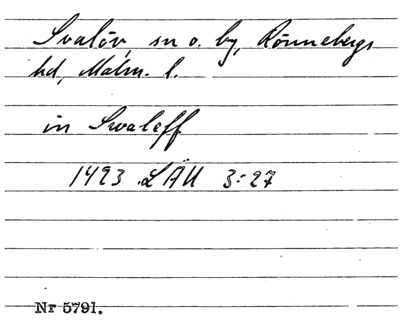 Svalöv, sn o. by, Rönnebergs
hd, Malm. l.
in Swaleff
1493 LÄU 3:27
Nr 5791.